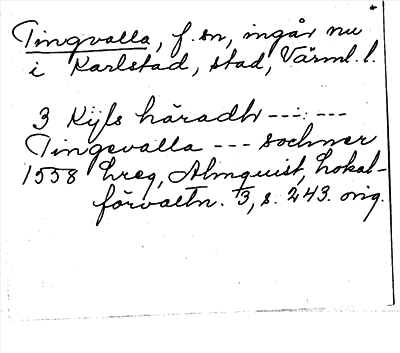 Tingvalla, f. sn, ingår nu
i Karlstad, stad, Värml. l.
3 Kijls häradh --- : ---
Tingevalla --- sochner
1558 hreg, Almquist, Lokal-
förvaltn. 3, s. 243. orig.